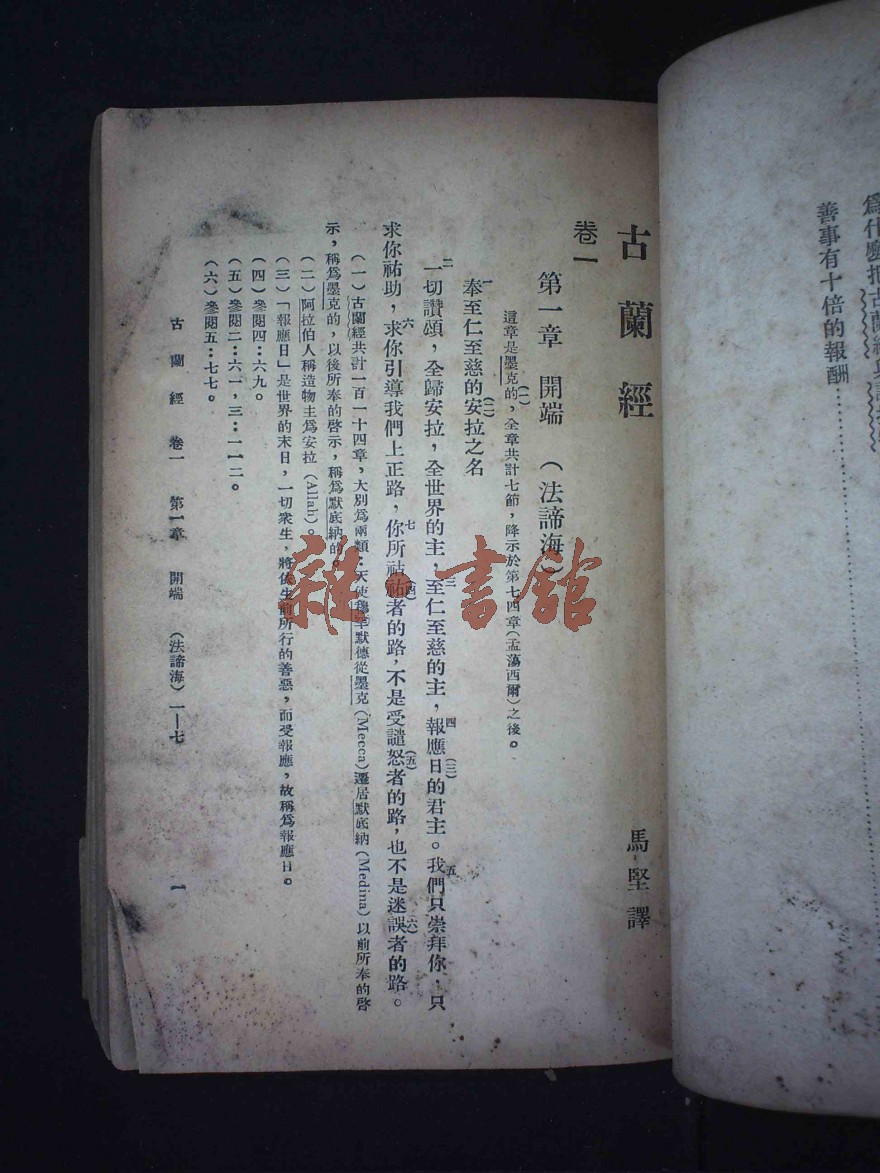 為什麼把古蘭經
善事有十倍的報酬
古蘭經
馬堅譯
卷一
第一章 開端 (法諦海)
這章是墨克的,(一)全章共計七節,降示於第七四章(孟蕩西爾)之後。
一奉至仁至慈的安拉(二)之名
二一切讚頌,全歸安拉,全世界的主,三至仁至慈的主,四報應日(三)的君主。五我們只崇拜你,只
求你祐助,六求你引導我們上正路,七你所祐者(四)的路,不是受譴怒者(五)的路,也不是迷誤者(六)的路。
(一)古蘭經共計一百一十四章,大別為兩類:天使從墨克(Mecca)遷居默底納(Medina)以前所奉的啓
示,稱為墨克的,以後所奉的啓示,稱為默底納的
(二)阿拉伯人稱造物主為安拉(Allah)。
(三)「報應日」是世界的末日,一切衆生,將依生前所行的善惡,而受報應,故稱為報應日。
(四)參閱四:六九。
(五)參閱二:六一,三:一一二。
(六)參閱五:七七。
古蘭經 卷一 第一章 開端 (法諦海)一—七
一
雜·書館